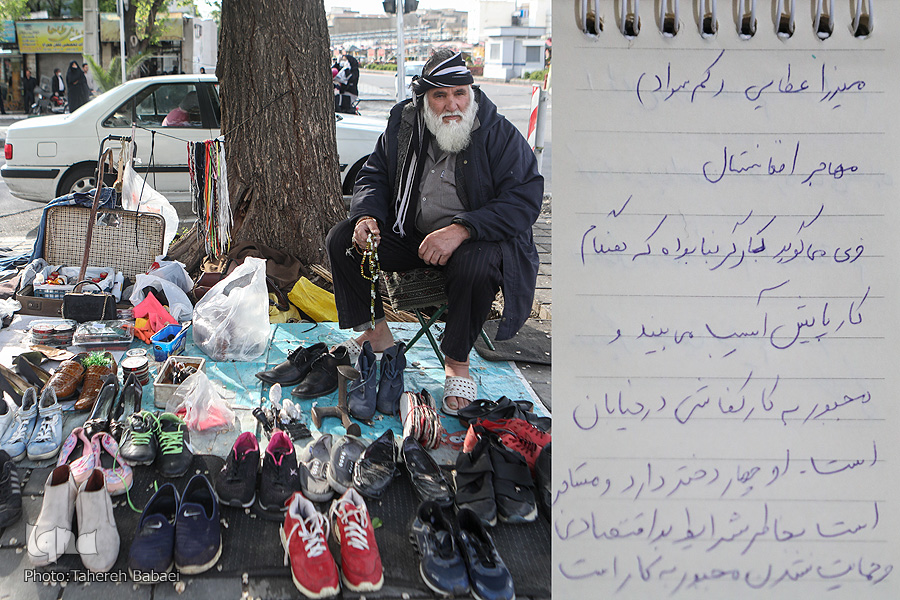 میرزا عطایی (کم سواد)
مهاجر افغانستان
وی می‌گوید کارگر بنا بوده که هنگام
کار پایش آسیب می‌بیند و
مجبور به کار کفاشی در خیابان
است. او چهار دختر دارد و
است بخاطر شرایط بد اقتصادی
و حمایت نشدن مجبور به کار است
iqna
Photo: Tahereh Babaei